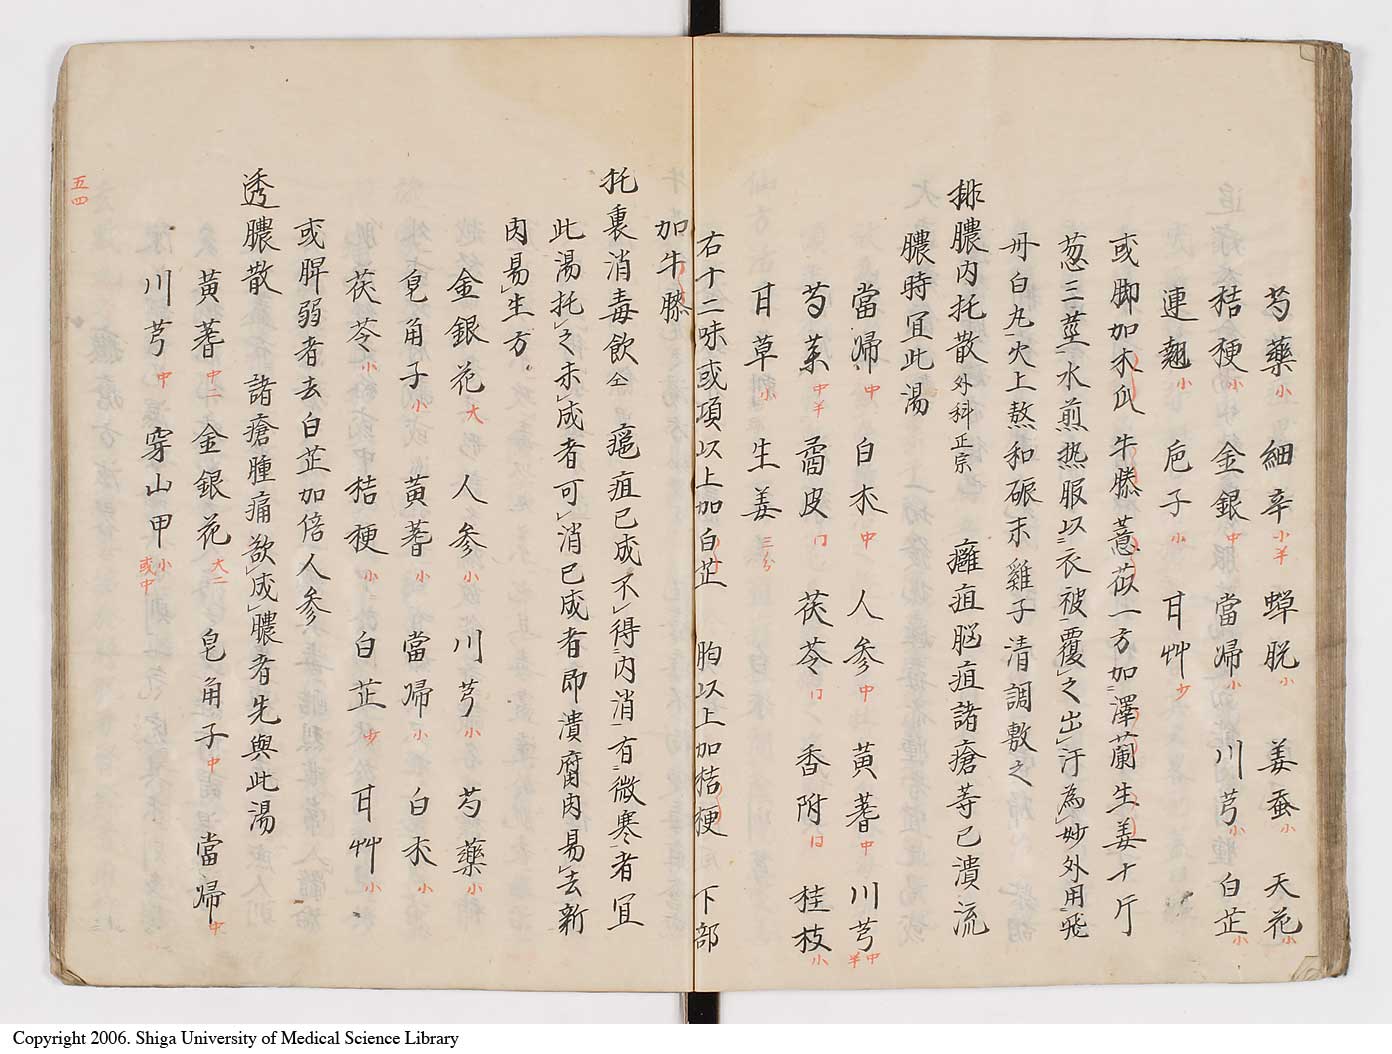 芍藥小 細辛小半 蟬脱小 姜蚕小 天花小
桔梗小 金銀中 當帰小 川芎小 白芷小
連翹小 梔子小 甘艸少
或脚加木瓜 牛膝 薏苡 一方加澤蘭生姜十斤
葱三莖水煎热服以衣被覆之出汗為妙外用飛
丹白丸火上熬和碾末雞子清調敷之
排膿内托散 外科正宗 癰疽脳疽諸瘡等已潰流
膿時冝此湯
當帰中 白朮中 人参中 黄蓍中 川芎中半
芍薬中半 橘皮门 茯苓门 香附门 桂枝小
甘草小 生姜三分
右十二味或項以上加白芷 胸以上加桔梗 下部
加牛膝
托裏消毒飲仝 癰疽已成不得内消有微寒者冝
此湯托之未成者可消已成者即潰腐肉易去新
肉易生方
金銀花大 人参小 川芎小 芍藥小
皀角子小 黄蓍小 當帰小 白朮小
茯苓小 桔梗小 白芷少 甘艸小
或脾弱者去白芷加倍人参
透膿散 諸瘡腫痛欲成膿者先與此湯
黄蓍中二 金銀花大二 皀角子中 當帰中
川芎中 穿山甲小或中
五四
Copyright 2006. Shiga University of Medical Science Library